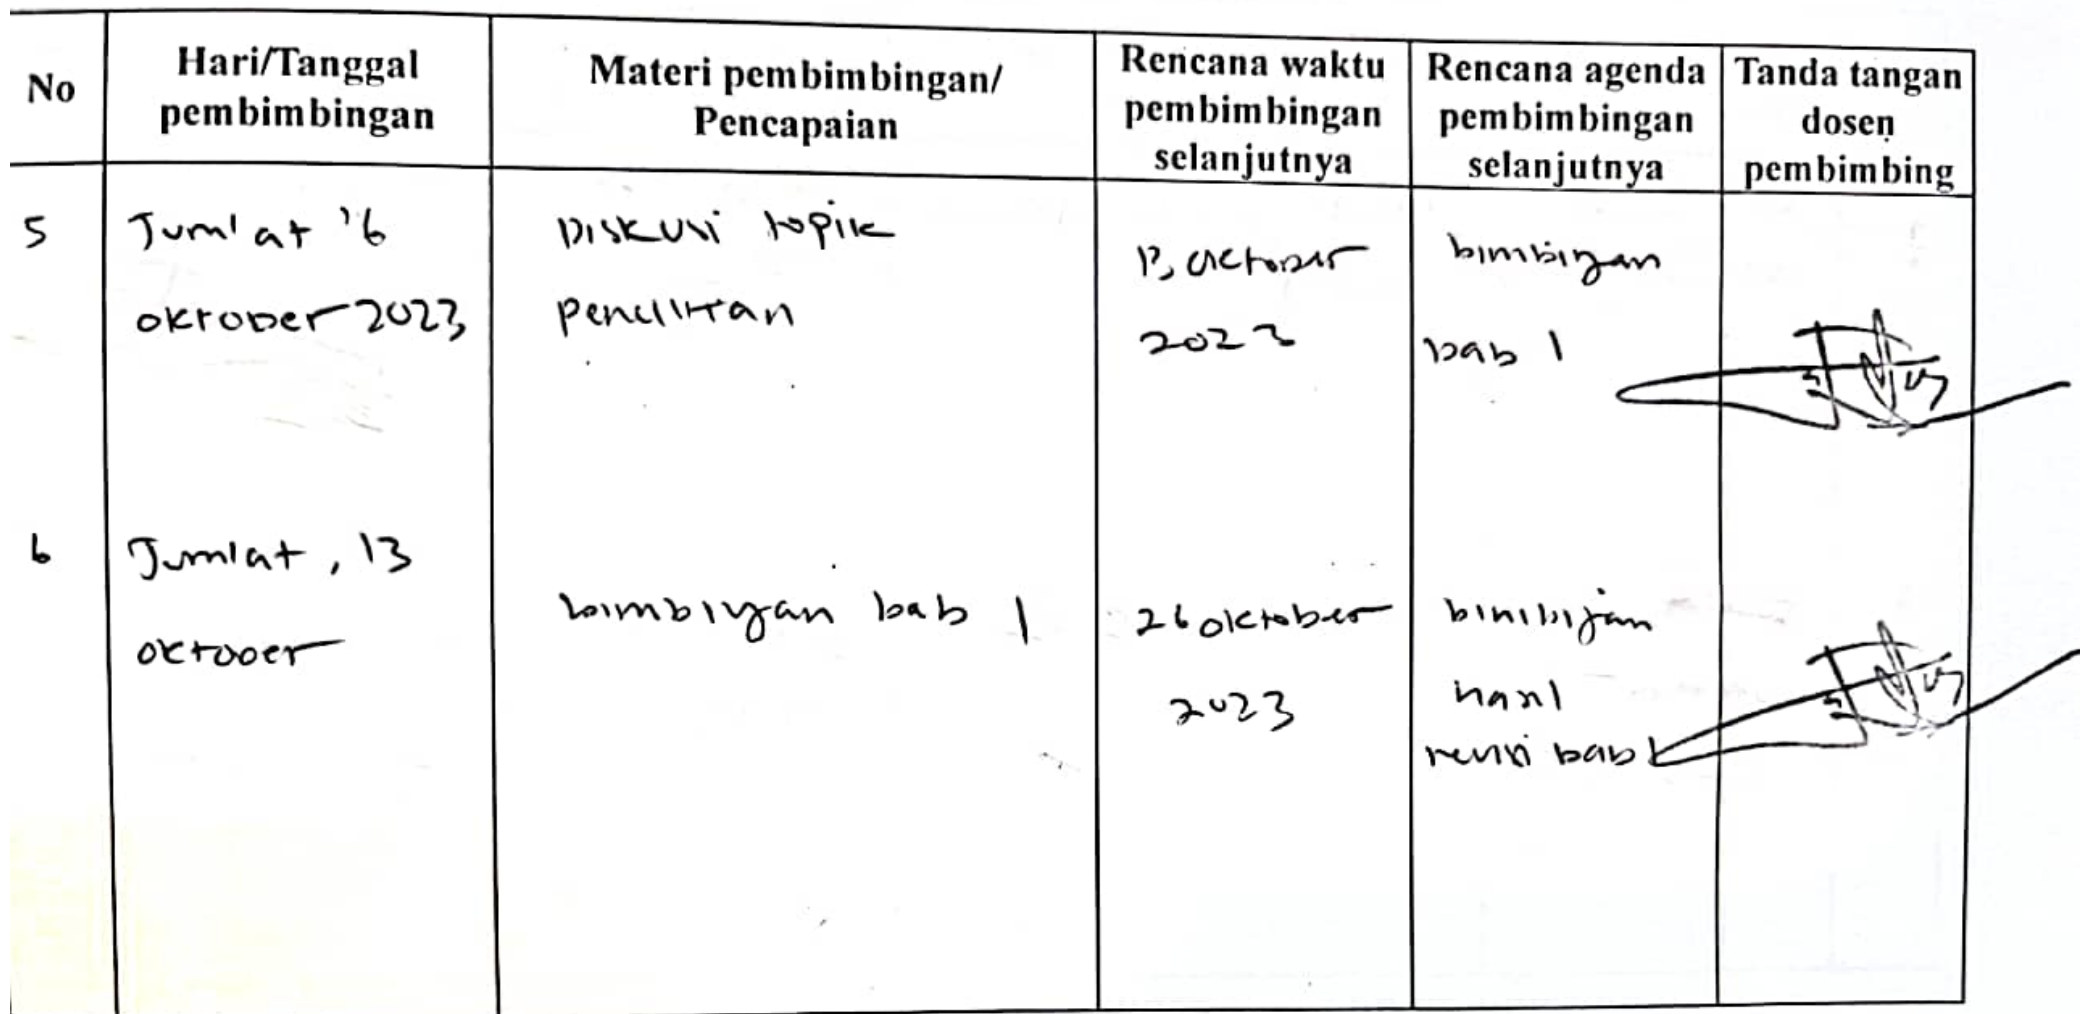 No
Hari/Tanggal
pembimbingan
Materi pembimbingan/
Pencapaian
Rencana waktu
pembimbingan
selanjutnya
Rencana agenda
pembimbingan
selanjutnya
Tanda tangan
dosen
pembimbing
5
Jum'at '6
oktober 2023
Diskusi topik
penelitian
13, oktober
2023
bimbingan
bab 1
6
Jum'at, 13
oktober
bimbingan bab 1
26 oktober
2023
bimbingan
hasil
revisi bab 1